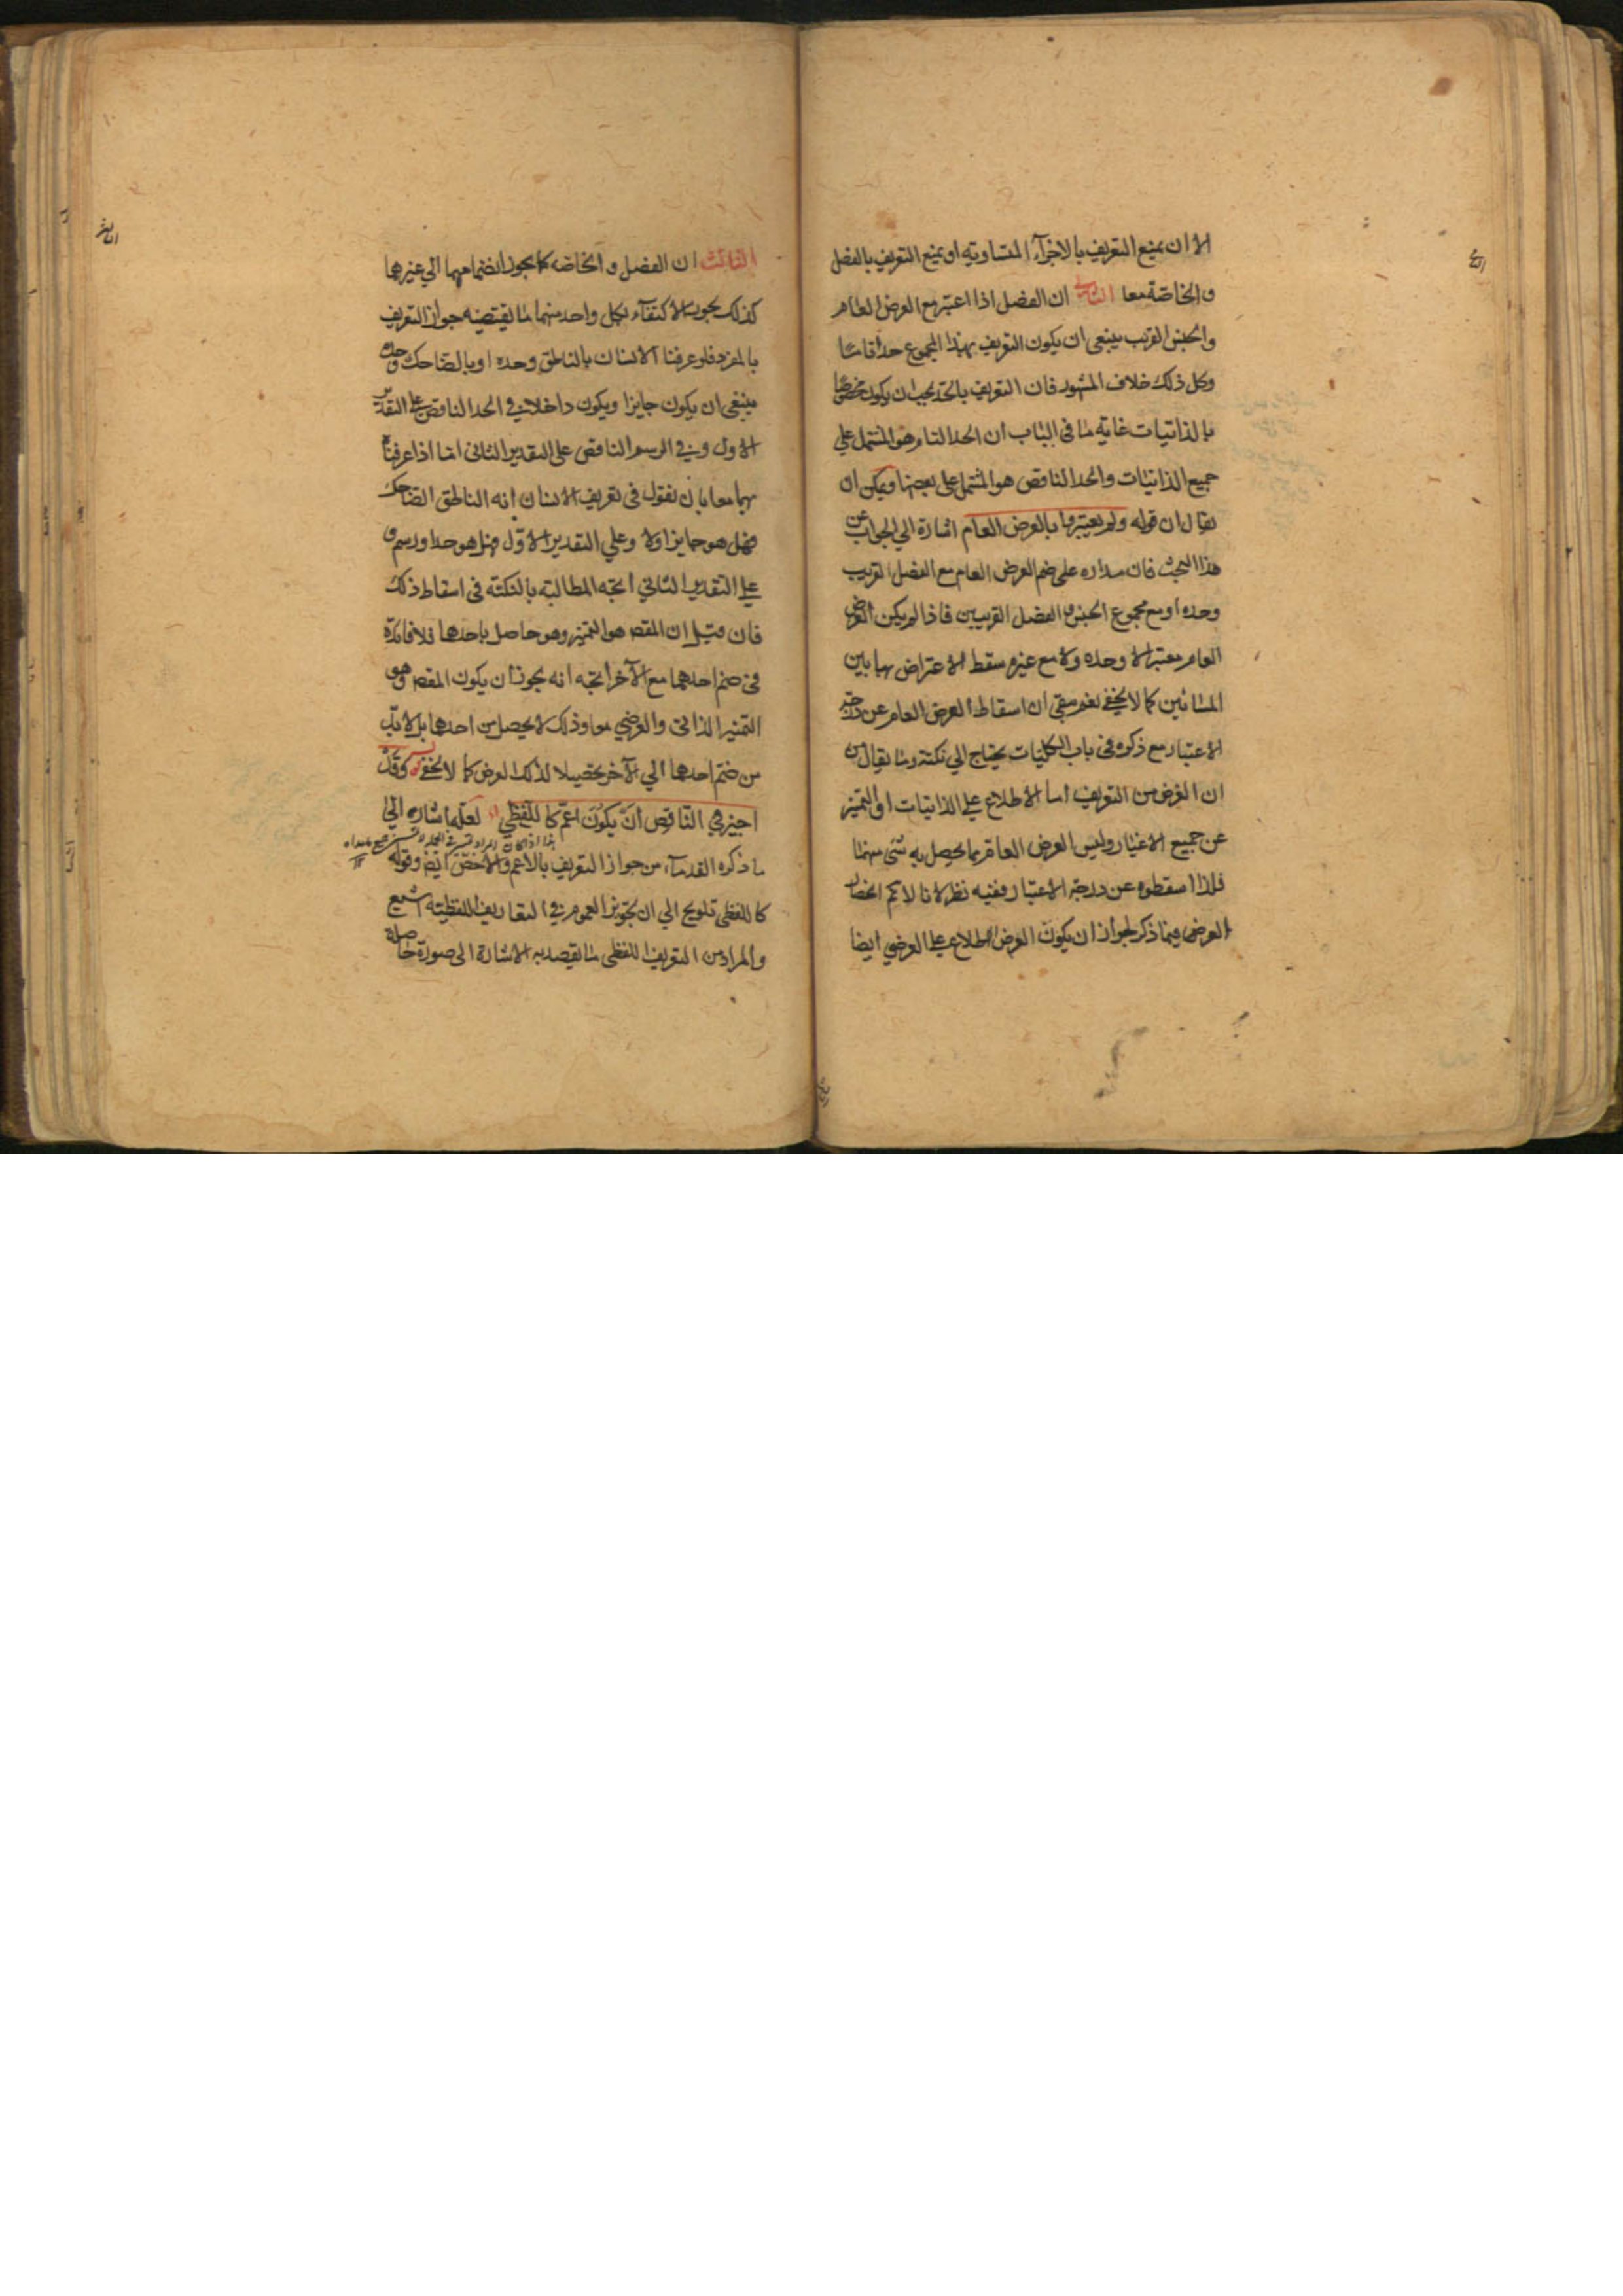 الا ان يمنع التعريف بالاجزآء المتساوية او يمنع التعريف بالفصل
والخاصة معا الثانى ان الفصل اذا اعتبر مع العرض العام
والجنس القريب ينبغى ان يكون التعريف بهذا المجموع حدا تاما
وكل ذلك خلاف المشهور فان التعريف بالحد يجب ان يكون مختصا
بالذاتيات غاية ما فى الباب ان الحد التام هو المشتمل على
جميع الذاتيات والحد الناقص هو المشتمل على بعضها ويمكن ان
يقال ان قوله ولم يعتبروا بالعرض العام اشارة الي الجواب عن
هذا البحث فان مداره على ضم العرض العام مع الفصل القريب
وحده او مع مجموع الجنس و الفصل القريبين فاذا لم يكن العرض
العام معتبرا لا وحده ولا مع غيره سقط الاعتراض بها بين
المسائين كما لا يخفى نعم بقى ان اسقاط العرض العام عن درجة
الاعتبار مع ذكره فى باب الكليات يحتاج الي نكتة وما يقال من
ان الغرض من التعريف اما الاطلاع علي الذاتيات او التميز
عن جميع الاغيار وليس العرض العام مما يحصل به شئ منهما
فلذا اسقطوه عن درجة الاعتبار ففيه نظر لانا لا نم انحصار
الغرض فيما ذكر لجواز ان يكون الغرض الاطلاع على العرضي ايضا
الثالث ان الفصل و الخاصة كما يجوز انضمامهما الي غيرهما
كذلك يجوز الاكتفآء بكل واحد منهما ما يقتضيه جواز التعريف
بالمفرد فلو عرفنا الانسان بالناطق وحده او بالضاحك وحده
ينبغى ان يكون جايزا ويكون داخلا فى الحد الناقص على التقدير
الاول وفي الرسم الناقص على التقدير الثانى اما اذا عرفناه
بهما معا بان نقول فى تعريف الانسان انه الناطق الضاحك
فهل هو جايز او لا وعلي التقدير الاول فهل هو حد او رسم و
علي التقدير الثاني اتجه المطالبة بالنكتة فى اسقاط ذلك
فان قيل ان المقصـ هو التميز وهو حاصل باحدهما فلا فائدة
فى ضم احدهما مع الآخر اتجه انه يجوز ان يكون المقصـ هو
التميز الذاتى والعرضي معا وذلك لا يحصل من احدهما بل لا بد
من ضم احدهما الي الآخر تحصيلا لذلك الغرض كما لا يخفى قوله وقد
اجيز في الناقص ان يكون اعم كاللفظي لعله اشاره الي
ما ذكره القدمآء من جواز التعريف بالاعم والاخص ايضـ وقوله
كاللفظى تلويح الي ان تجويز العموم في التعاريف اللفظية اشيع
والمراد من التعريف اللفظى ما يقصد به الاشارة الى صورة حاصلة